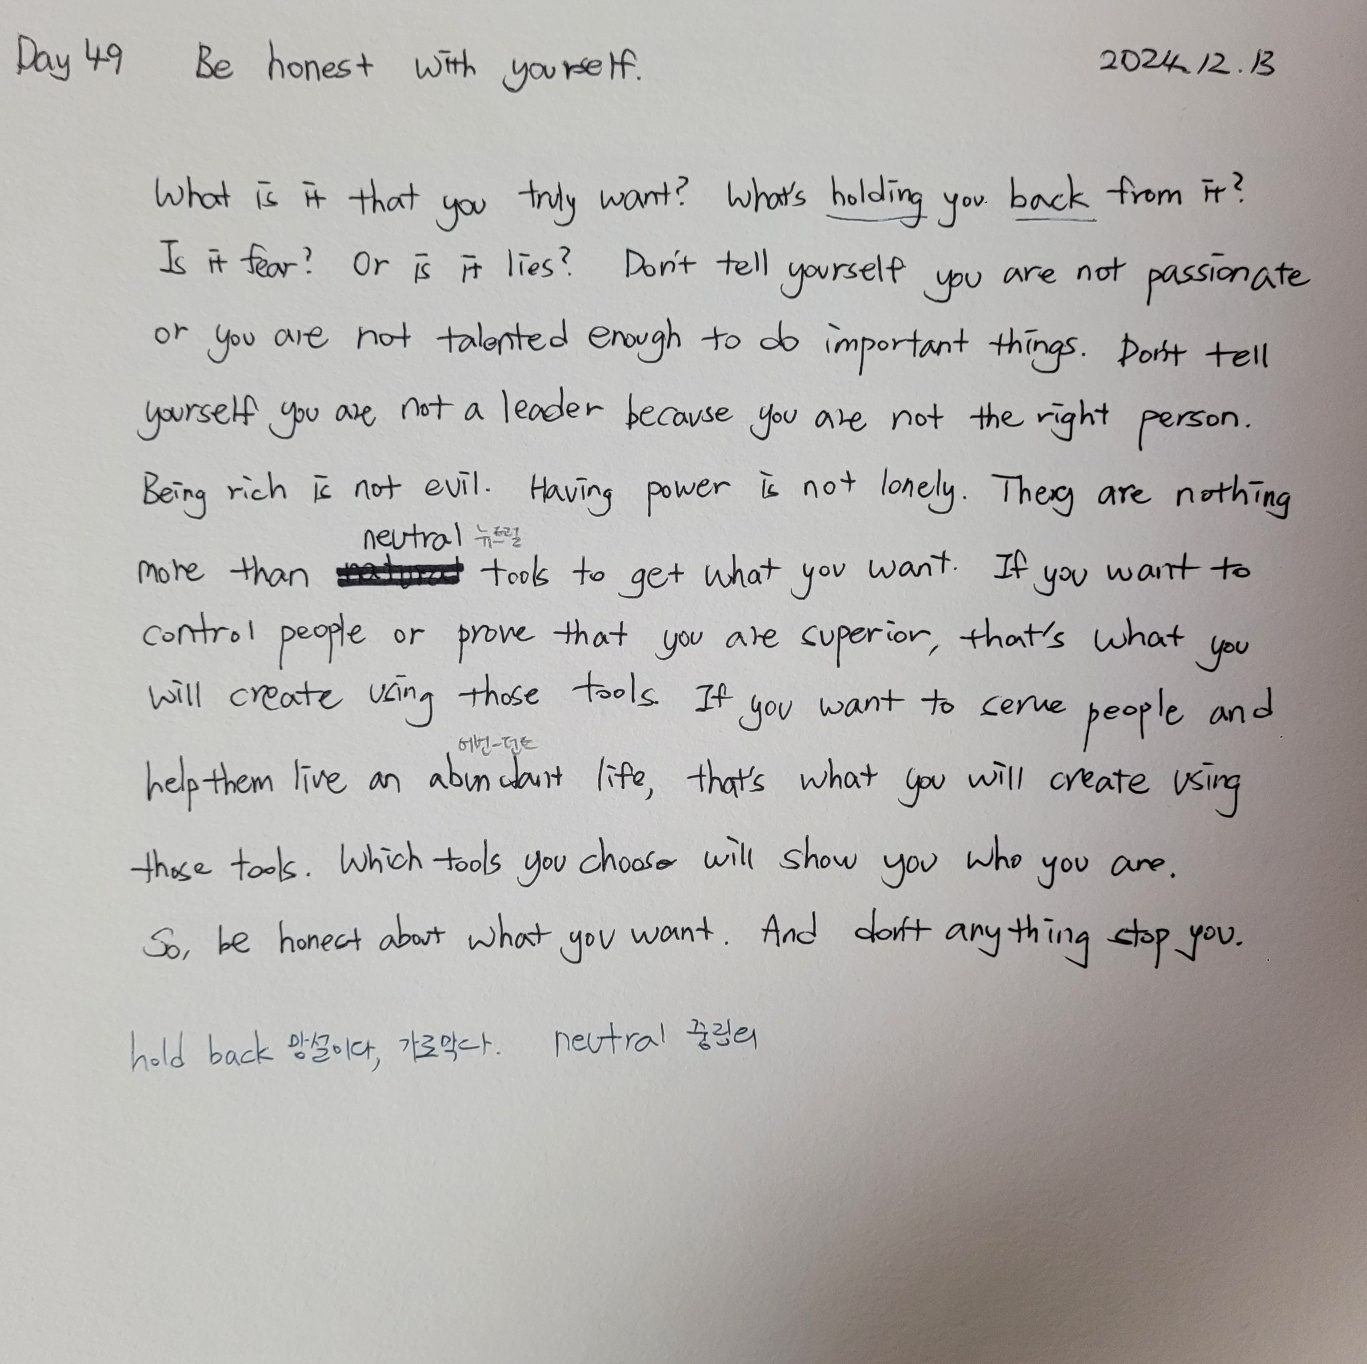 Day 49 Be honest with yourself. 2024.12.13
What is it that you truly want? What's holding you back from it?
Is it fear? Or is it lies? Don't tell yourself you are not passionate
or you are not talented enough to do important things. Don't tell
yourself you are not a leader because you are not the right person.
Being rich is not evil. Having power is not lonely. They are nothing
neutral 뉴트럴
more than tools to get what you want. If you want to
control people or prove that you are superior, that's what you
will create using those tools. If you want to serve people and
어번-던트
help them live an abundant life, that's what you will create using
those tools. Which tools you choose will show you who you are.
So, be honest about what you want. And don't anything stop you.
hold back 망설이다, 가로막다. neutral 중립의